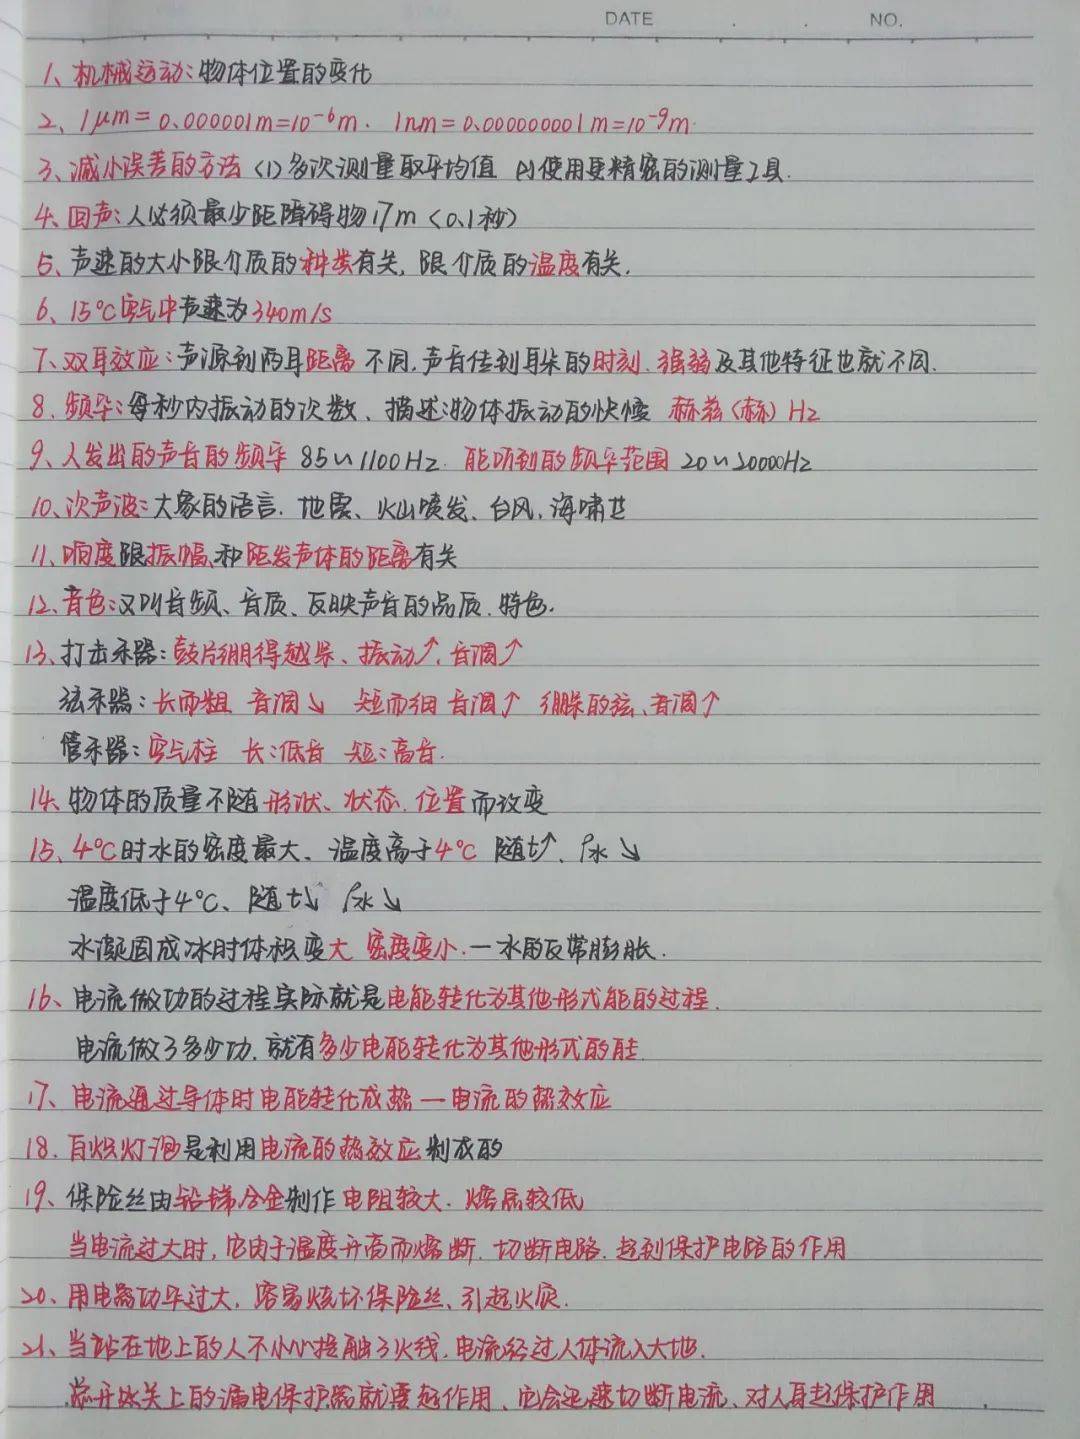 DATE . . NO.
1、机械运动：物体位置的变化
2、1μm=0.000001m=10⁻⁶m. 1nm=0.000000001m=10⁻⁹m.
3、减小误差的方法 (1)多次测量取平均值 (2)使用更精密的测量工具.
4、回声：人必须最少距障碍物17m (0.1秒)
5、声速的大小跟介质的种类有关, 跟介质的温度有关.
6、15℃空气中声速为340m/s
7、双耳效应：声源到两耳距离不同.声音传到耳朵的时刻、强弱及其他特征也就不同.
8、频率：每秒内振动的次数、描述物体振动的快慢 赫兹(赫) Hz
9、人发出的声音的频率 85~1100Hz. 能听到的频率范围 20~20000Hz
10、次声波：大象的语言. 地震、火山喷发、台风、海啸
11、响度跟振幅和距发声体的距离有关
12、音色：又叫音频、音质、反映声音的品质、特色.
13、打击乐器：鼓皮绷得越紧、振动↑、音调↑
弦乐器：长而粗 音调↘ 短而细 音调↑ 绷紧的弦、音调↑
管乐器：空气柱 长：低音 短：高音.
14、物体的质量不随形状、状态、位置而改变
15、4℃时水的密度最大、温度高于4℃ 随t↑、ρ水↘
温度低于4℃、随t↓ ρ水↘
水凝固成冰时体积变大 密度变小.一水的反常膨胀.
16、电流做功的过程实际就是电能转化为其他形式能的过程.
电流做了多少功、就有多少电能转化为其他形式的能
17、电流通过导体时电能转化成热一电流的热效应
18、白炽灯泡是利用电流的热效应制成的
19、保险丝由铅锑合金制作 电阻较大、熔点较低
当电流过大时,它由于温度升高而熔断、切断电路、起到保护电路的作用
20、用电器功率过大, 容易烧坏保险丝、引起火灾.
21、当站在地上的人不小心接触了火线,电流经过人体流入大地.
总开关上的漏电保护器就要起作用、它会迅速切断电流、对人身起保护作用